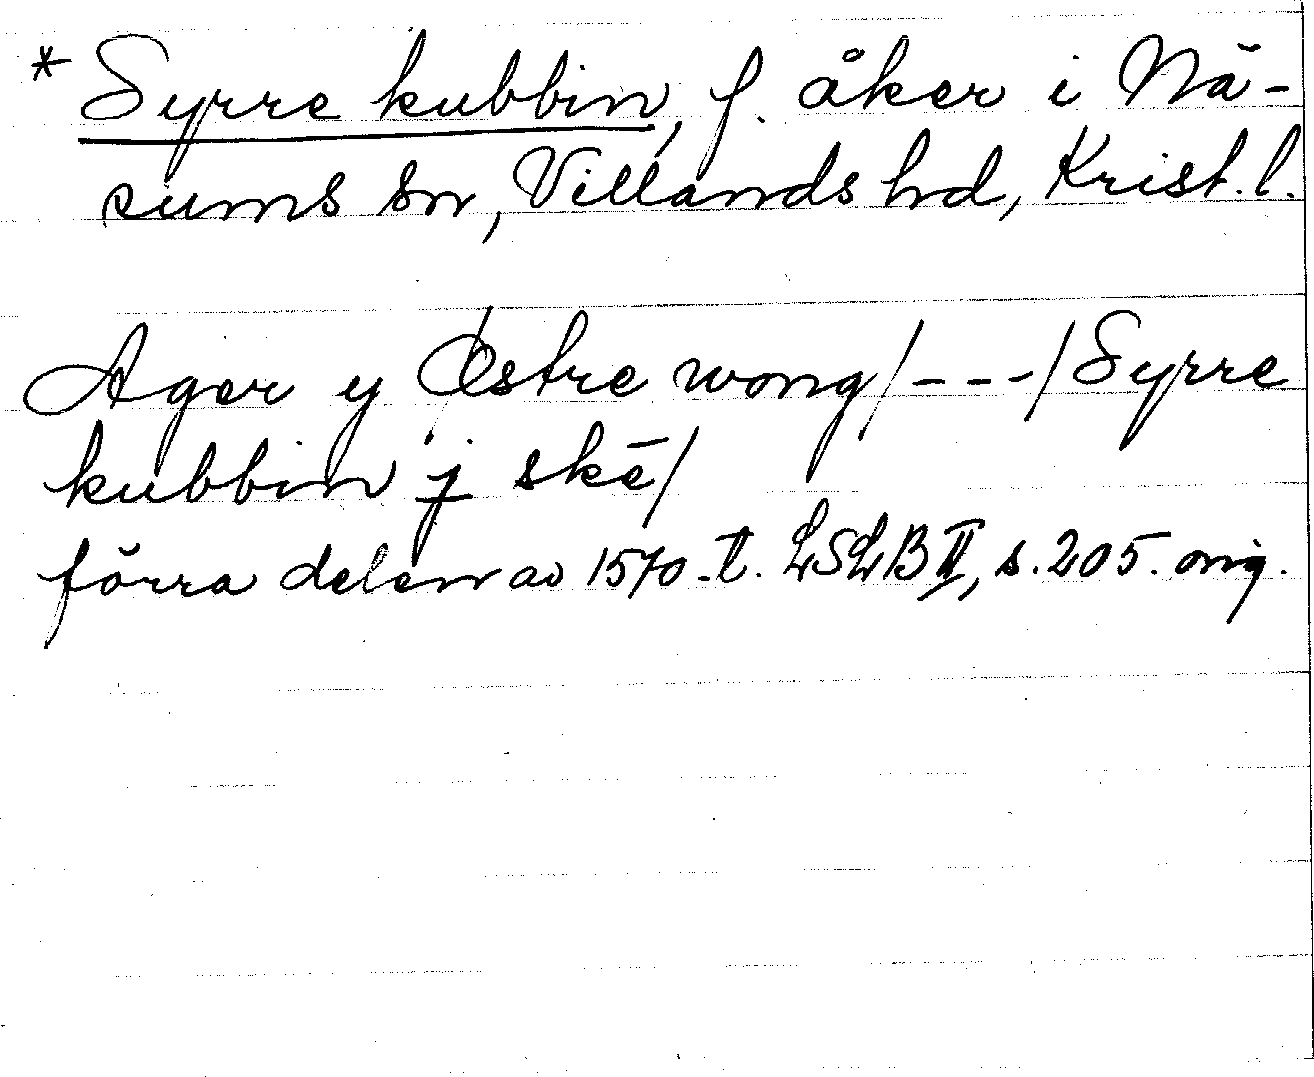 * Syrre kubbin, f. åker i Nä-
sums sn, Villands hd, Krist. l.
Ager y Østre wong/---/Syrre
kubbin j skē/
förra delen av 1570-t. LSLB II, s. 205. orig.